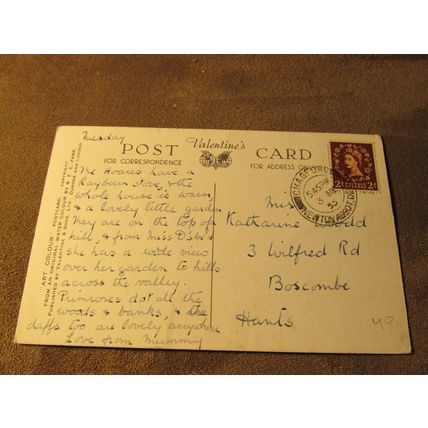 Tuesday
POST
Valentine's
CARD
FOR CORRESPONDENCE
FOR ADDRESS ONLY
The Hoares have a
Rayburn stove, & the
whole house is warm,
& a lovely little garden.
They are on the top of
hill, & from Miss D's bed
she has a wide view
over her garden to hills
across the valley.
Primroses dot all the
woods & banks, & the
daffs too are lovely everywhere
Love from Mummy
Miss
Katharine Wood
3 Wilfred Rd
Boscombe
Hants
40
CHAGFORD
5 45 PM
5
55
NEWTON ABBOT DEVON
2D
2D
POSTAGE REVENUE
ART COLOUR POSTCARD. COPYRIGHT
FROM AN ORIGINAL WATER COLOUR BY
PUBLISHED BY VALENTINE & SONS LTD DUNDEE AND LONDON